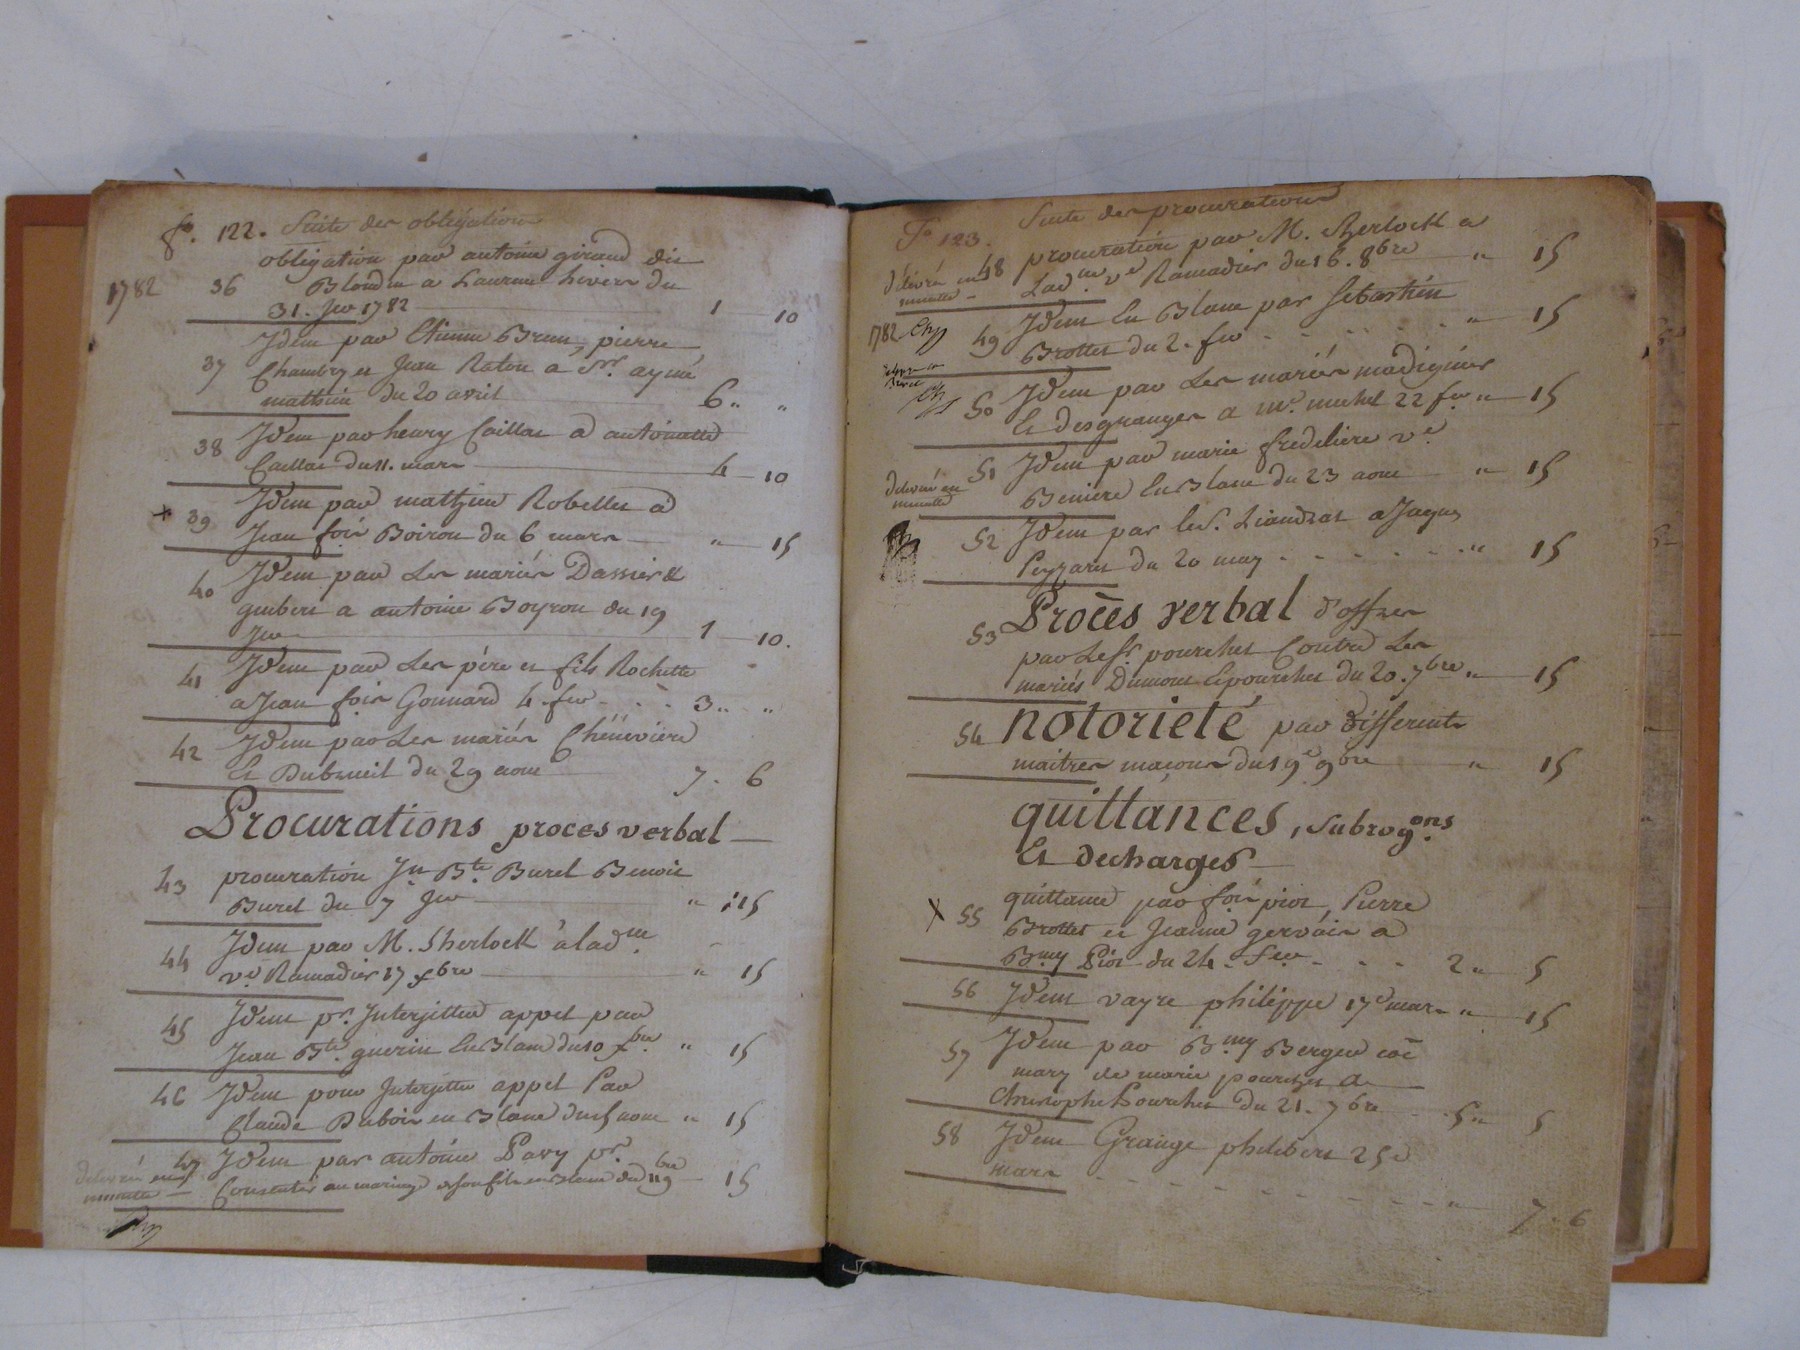 fo. 122. Suite des obligations
1782 36 obligation par antoine giraud dit
Blondin a Laurent hivers du
31. Jer 1782 1 10
37 Idem par Etienne Brun, pierre
Chambry et Jean Raton a Sr. aymé
mathieu du 20 avril 6 " "
38 Idem par henry Caillat a antoinette
Caillat du 11. mars 4 10
+ 39 Idem par mathieu Robellet a
Jean fois Boiron du 6 mars " 15
40 Idem par Les mariés Dassier &
guibert a antoine Boyron du 19
Jer 1 10.
41 Idem par Les père et fils Rochette
a Jean fois Gonnard 4 fer 3 " "
42 Idem par Les mariés Chénévière
Et Dubrueil du 29 aout 7 . 6
Procurations proces verbal
43 procuration Jn Bte. Burel Benoit
Burel du 7 Jer " 15
44 Idem par M. Sherlock a lad me
ve. Ramadier 17 xbre " 15
45 Idem pr. Interjetter appel par
Jean Bte. guerin En Blanc du 10 xbre. " 15
46 Idem pour Interjetter appel Par
Claude Dubois en Blanc du 5 aout " 15
délivré en minutte 47 Idem par antoine Pavy pr.
Consentir au mariage de son fils en Blanc du 11 9bre 15
fo 123. Suite des procurations
délivré en minutte 48 procuration par M. Sherlock a
Lad. me ve Ramadier du 16. 8bre " 15
1782 49 Idem En Blanc par Sebastien
Brottet du 2. fer " 15
50 Idem par Les mariés madignier
Et desgranges a me. michel 22 fer " 15
51 Idem par marie fredeliere ve.
délivré en minutte Beniere En Blanc du 23 aout " 15
52 Idem par le s. Liandrat a Jaques
Peyzaret du 20 may " 15
53 Procès verbal d'offres
par Le Sr. pourchet Contre Les
mariés Dumont Et pourchet du 20. 7bre " 15
54 notorieté par differents
maitres macons du 19e 9bre " 15
quittances, subrogons.
Et decharges
x 55 quittance par fois piot, Pierre
Brottet et Jeanne gervais a
Bmy Piot du 24. fer. 2 " 5
56 Idem vayre philippe 17e mars " 15
57 Idem par Bmy Berger coe
mary de marie pourchet a
Christophe Pourchet du 21. 7bre 5 " 5
58 Idem Grange philibert 25e
mars " 7 . 6